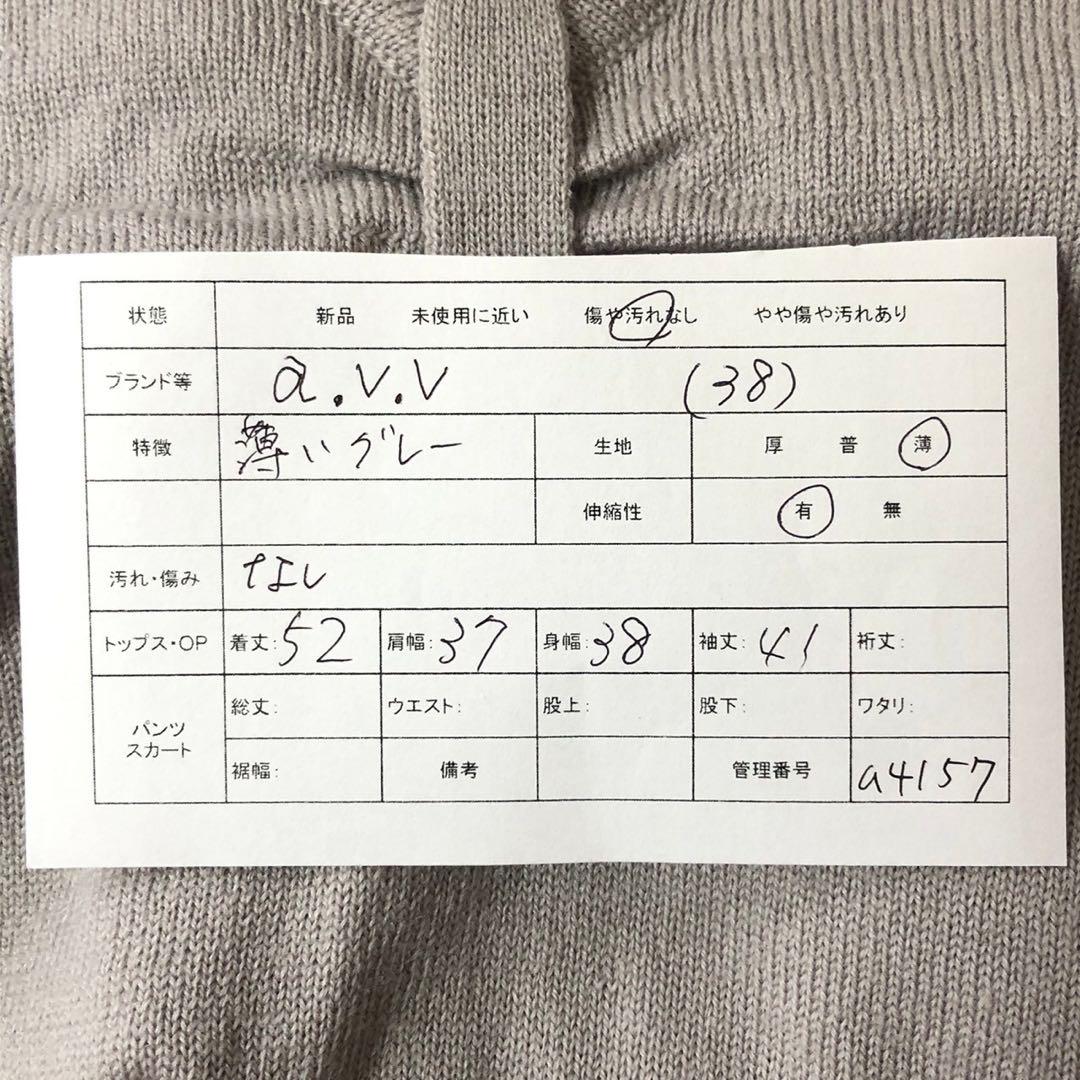 状態 新品 未使用に近い 傷や汚れなし やや傷や汚れあり
ブランド等 a.v.v (38)
特徴 薄いグレー 生地 厚 普 薄
伸縮性 有 無
汚れ・傷み なし
トップス・OP 着丈:52 肩幅:37 身幅:38 袖丈:41 裄丈:
パンツ スカート 総丈: ウエスト: 股上: 股下: ワタリ:
裾幅: 備考 管理番号 a4157